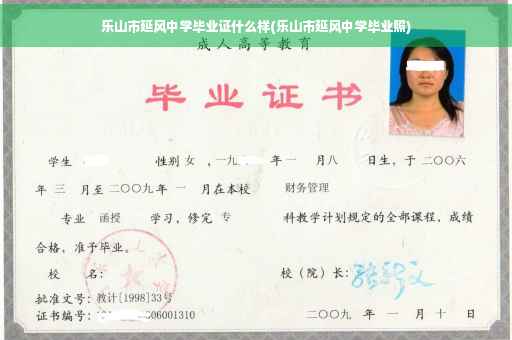 乐山市延风中学毕业证什么样(乐山市延风中学毕业照)
成人高等教育
毕业证书
学生 性别 女 ，一九 年 一 月八 日生，于 二〇〇六
年 三 月至 二〇〇九 年 一 月在本校 财务管理
专业 函授 学习，修完 专 科教学计划规定的全部课程，成绩
合格，准予毕业。
校 名： 校（院）长：
批准文号：教计[1998]33号
证书编号： 06001310 二〇〇九 年 一 月 十 日